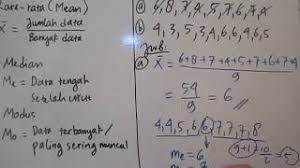 Rata-rata (Mean)
X̄ = Jumlah data
Banyak data
Median
Me = Data tengah
setelah urut
Modus
Mo = Data terbanyak/
paling sering muncul
ⓐ 6,8,7,4,5,6,7,7,4
ⓑ 4,3,5,3,4,6,6,4,6,5
Jwb:
ⓐ X̄ = 6+8+7+4+5+7+6+7+4
9
= 54 = 6
9
4,4,5,6,6,7,7,7,8
me = 6